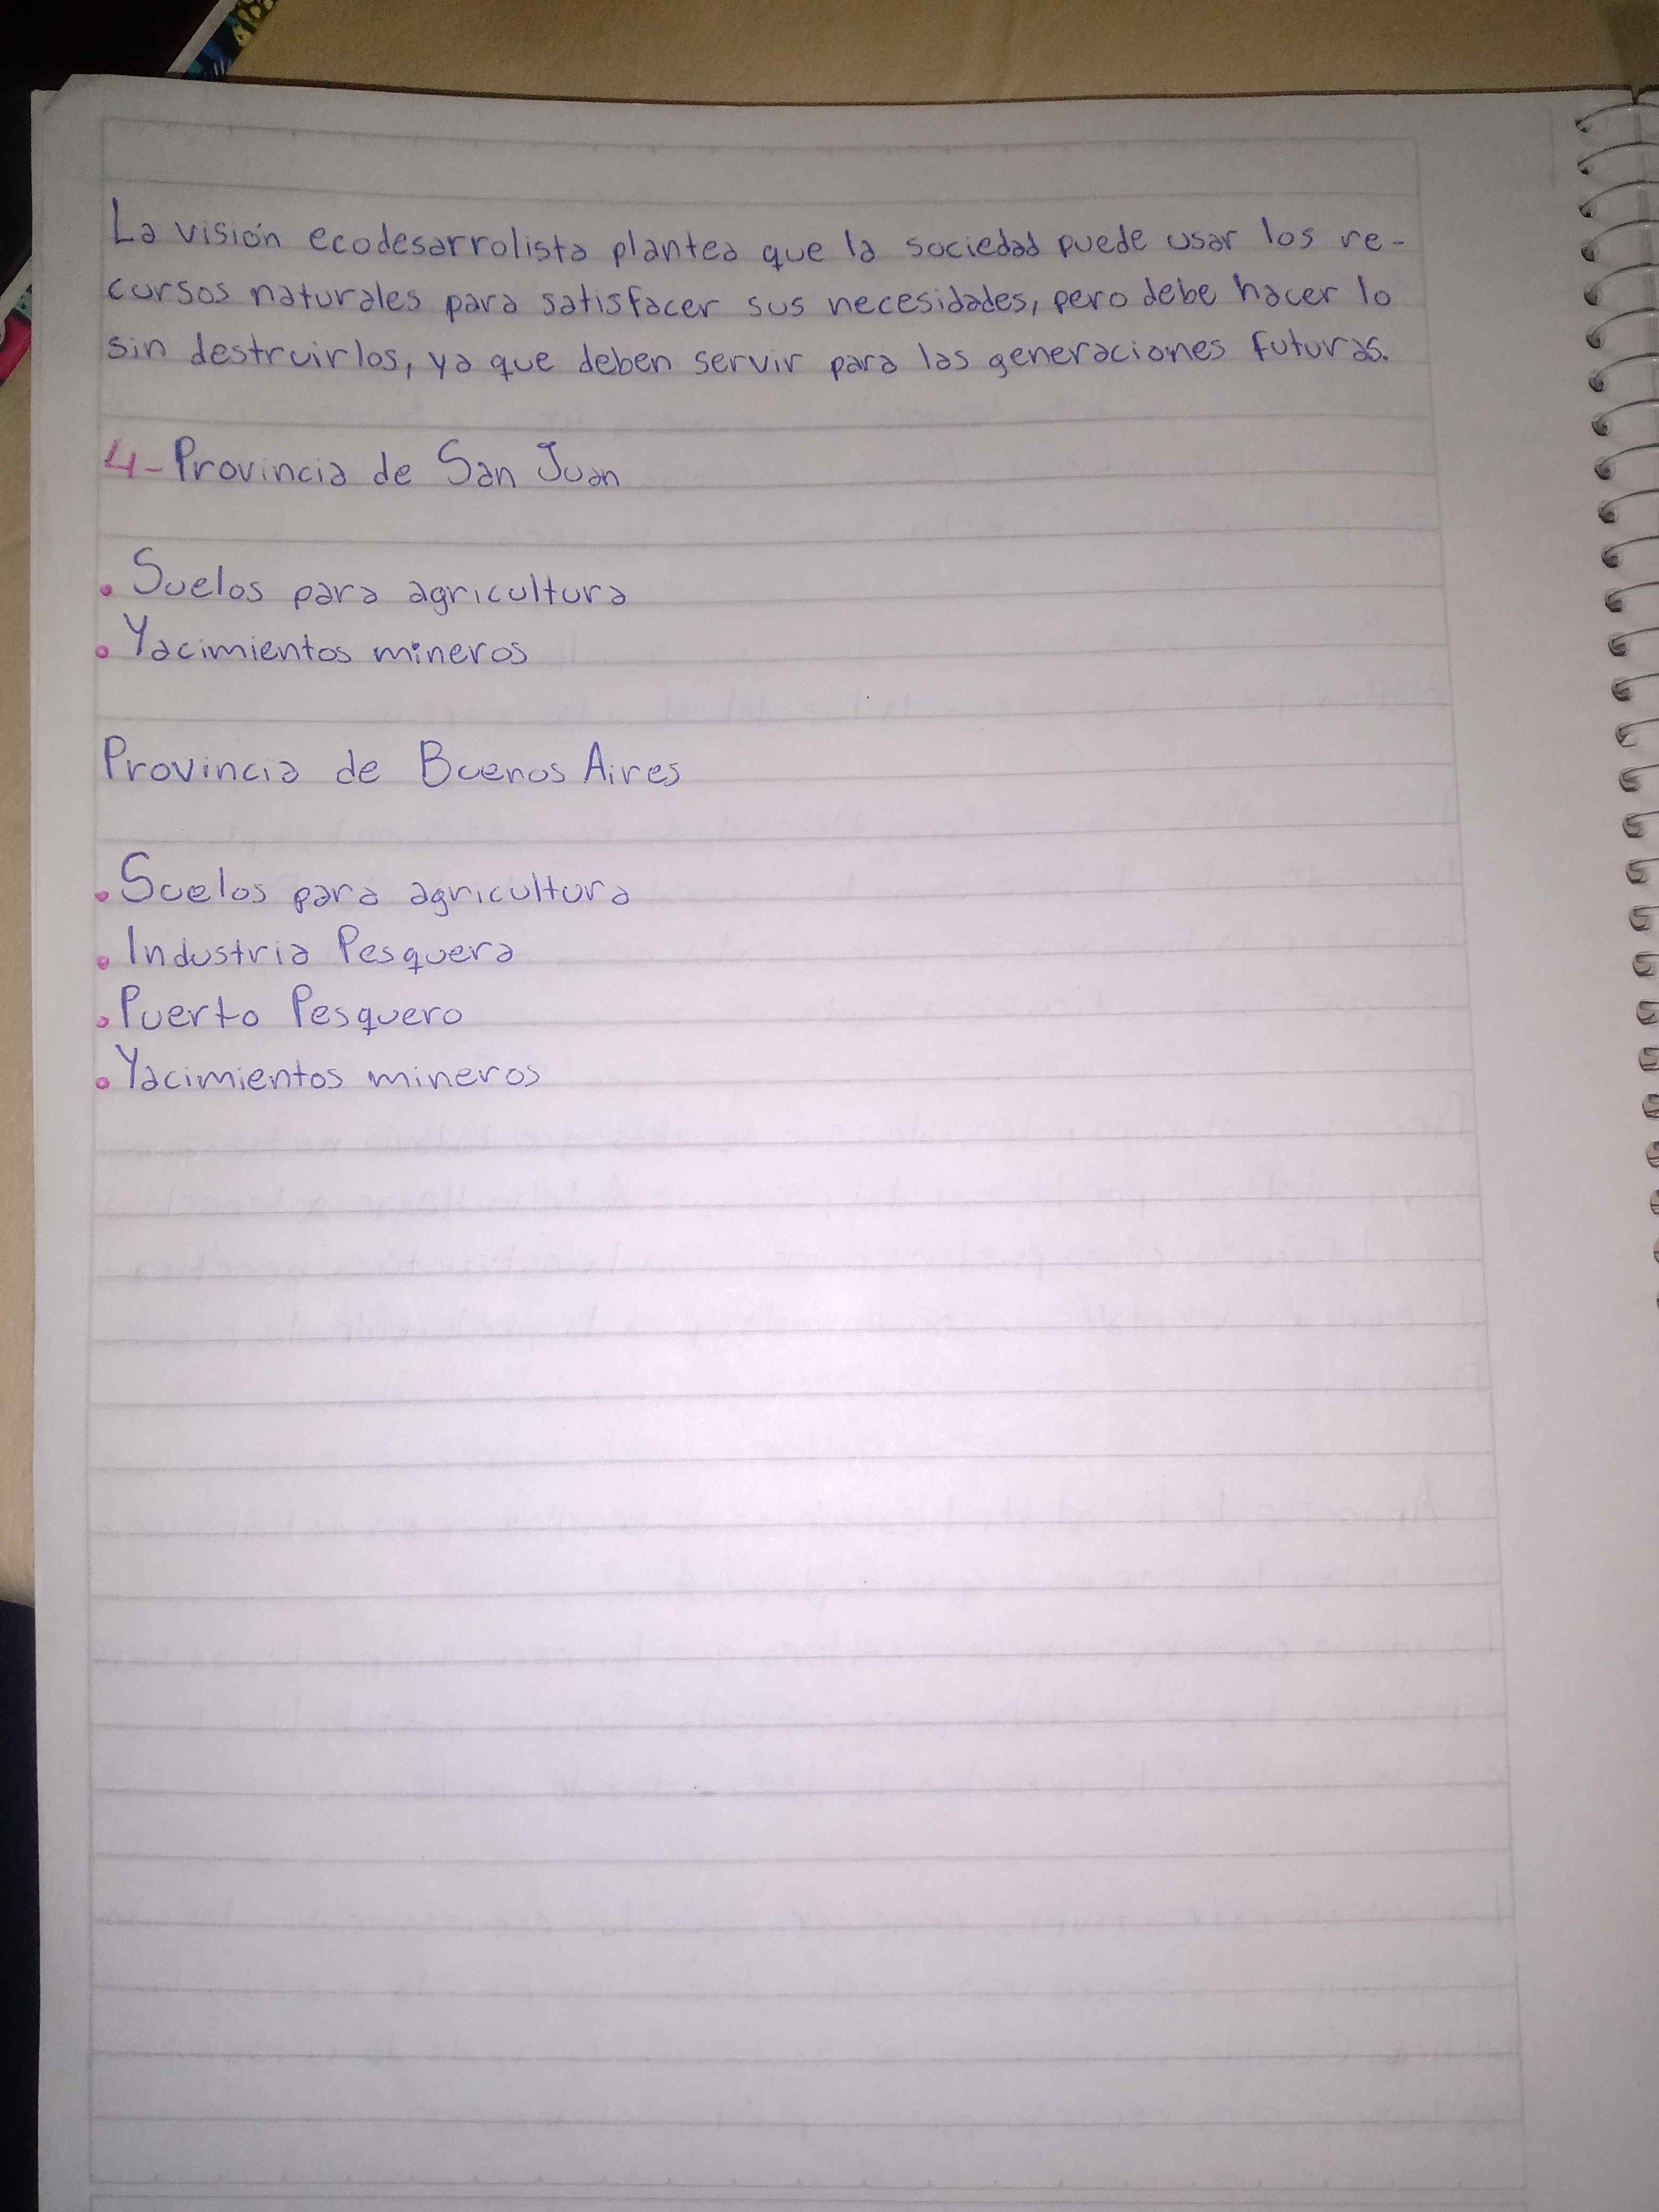 La visión ecodesarrolista plantea que la sociedad puede usar los re-
cursos naturales para satisfacer sus necesidades, pero debe hacer lo
sin destruirlos, ya que deben servir para las generaciones futuras.
4- Provincia de San Juan
• Suelos para agricultura
• Yacimientos mineros
Provincia de Buenos Aires
• Suelos para agricultura
• Industria Pesquera
• Puerto Pesquero
• Yacimientos mineros